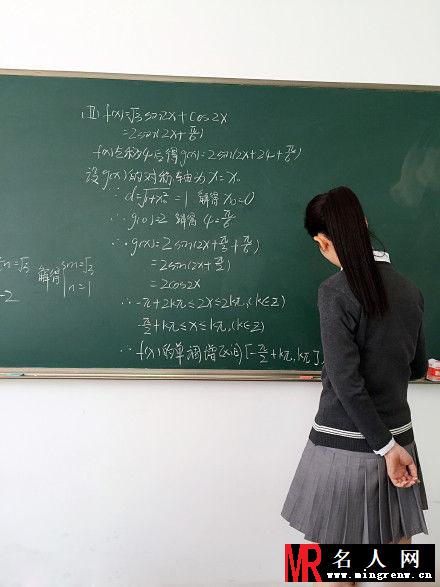 (Ⅱ) f(x)=√3 sin2x+cos2x
=2sin(2x+π/6)
f(x)左移φ后得g(x)=2sin(2x+2φ+π/6)
设g(x)的对称轴为x=x₀
∵ d=√(1+x₀²)=1 解得 x₀=0
∴ g(0)=2 解得 φ=π/6
∴ g(x)=2sin(2x+π/3+π/6)
=2sin(2x+π/2)
=2cos2x
∴ -π+2kπ≤2x≤2kπ,(k∈Z)
-π/2+kπ≤x≤kπ,(k∈Z)
∴ f(x)的单调谱区间[-π/2+kπ,kπ]
n=√3 解得 { m=√3
n=1
-2
MR 名人网
www.mingrenw.cn